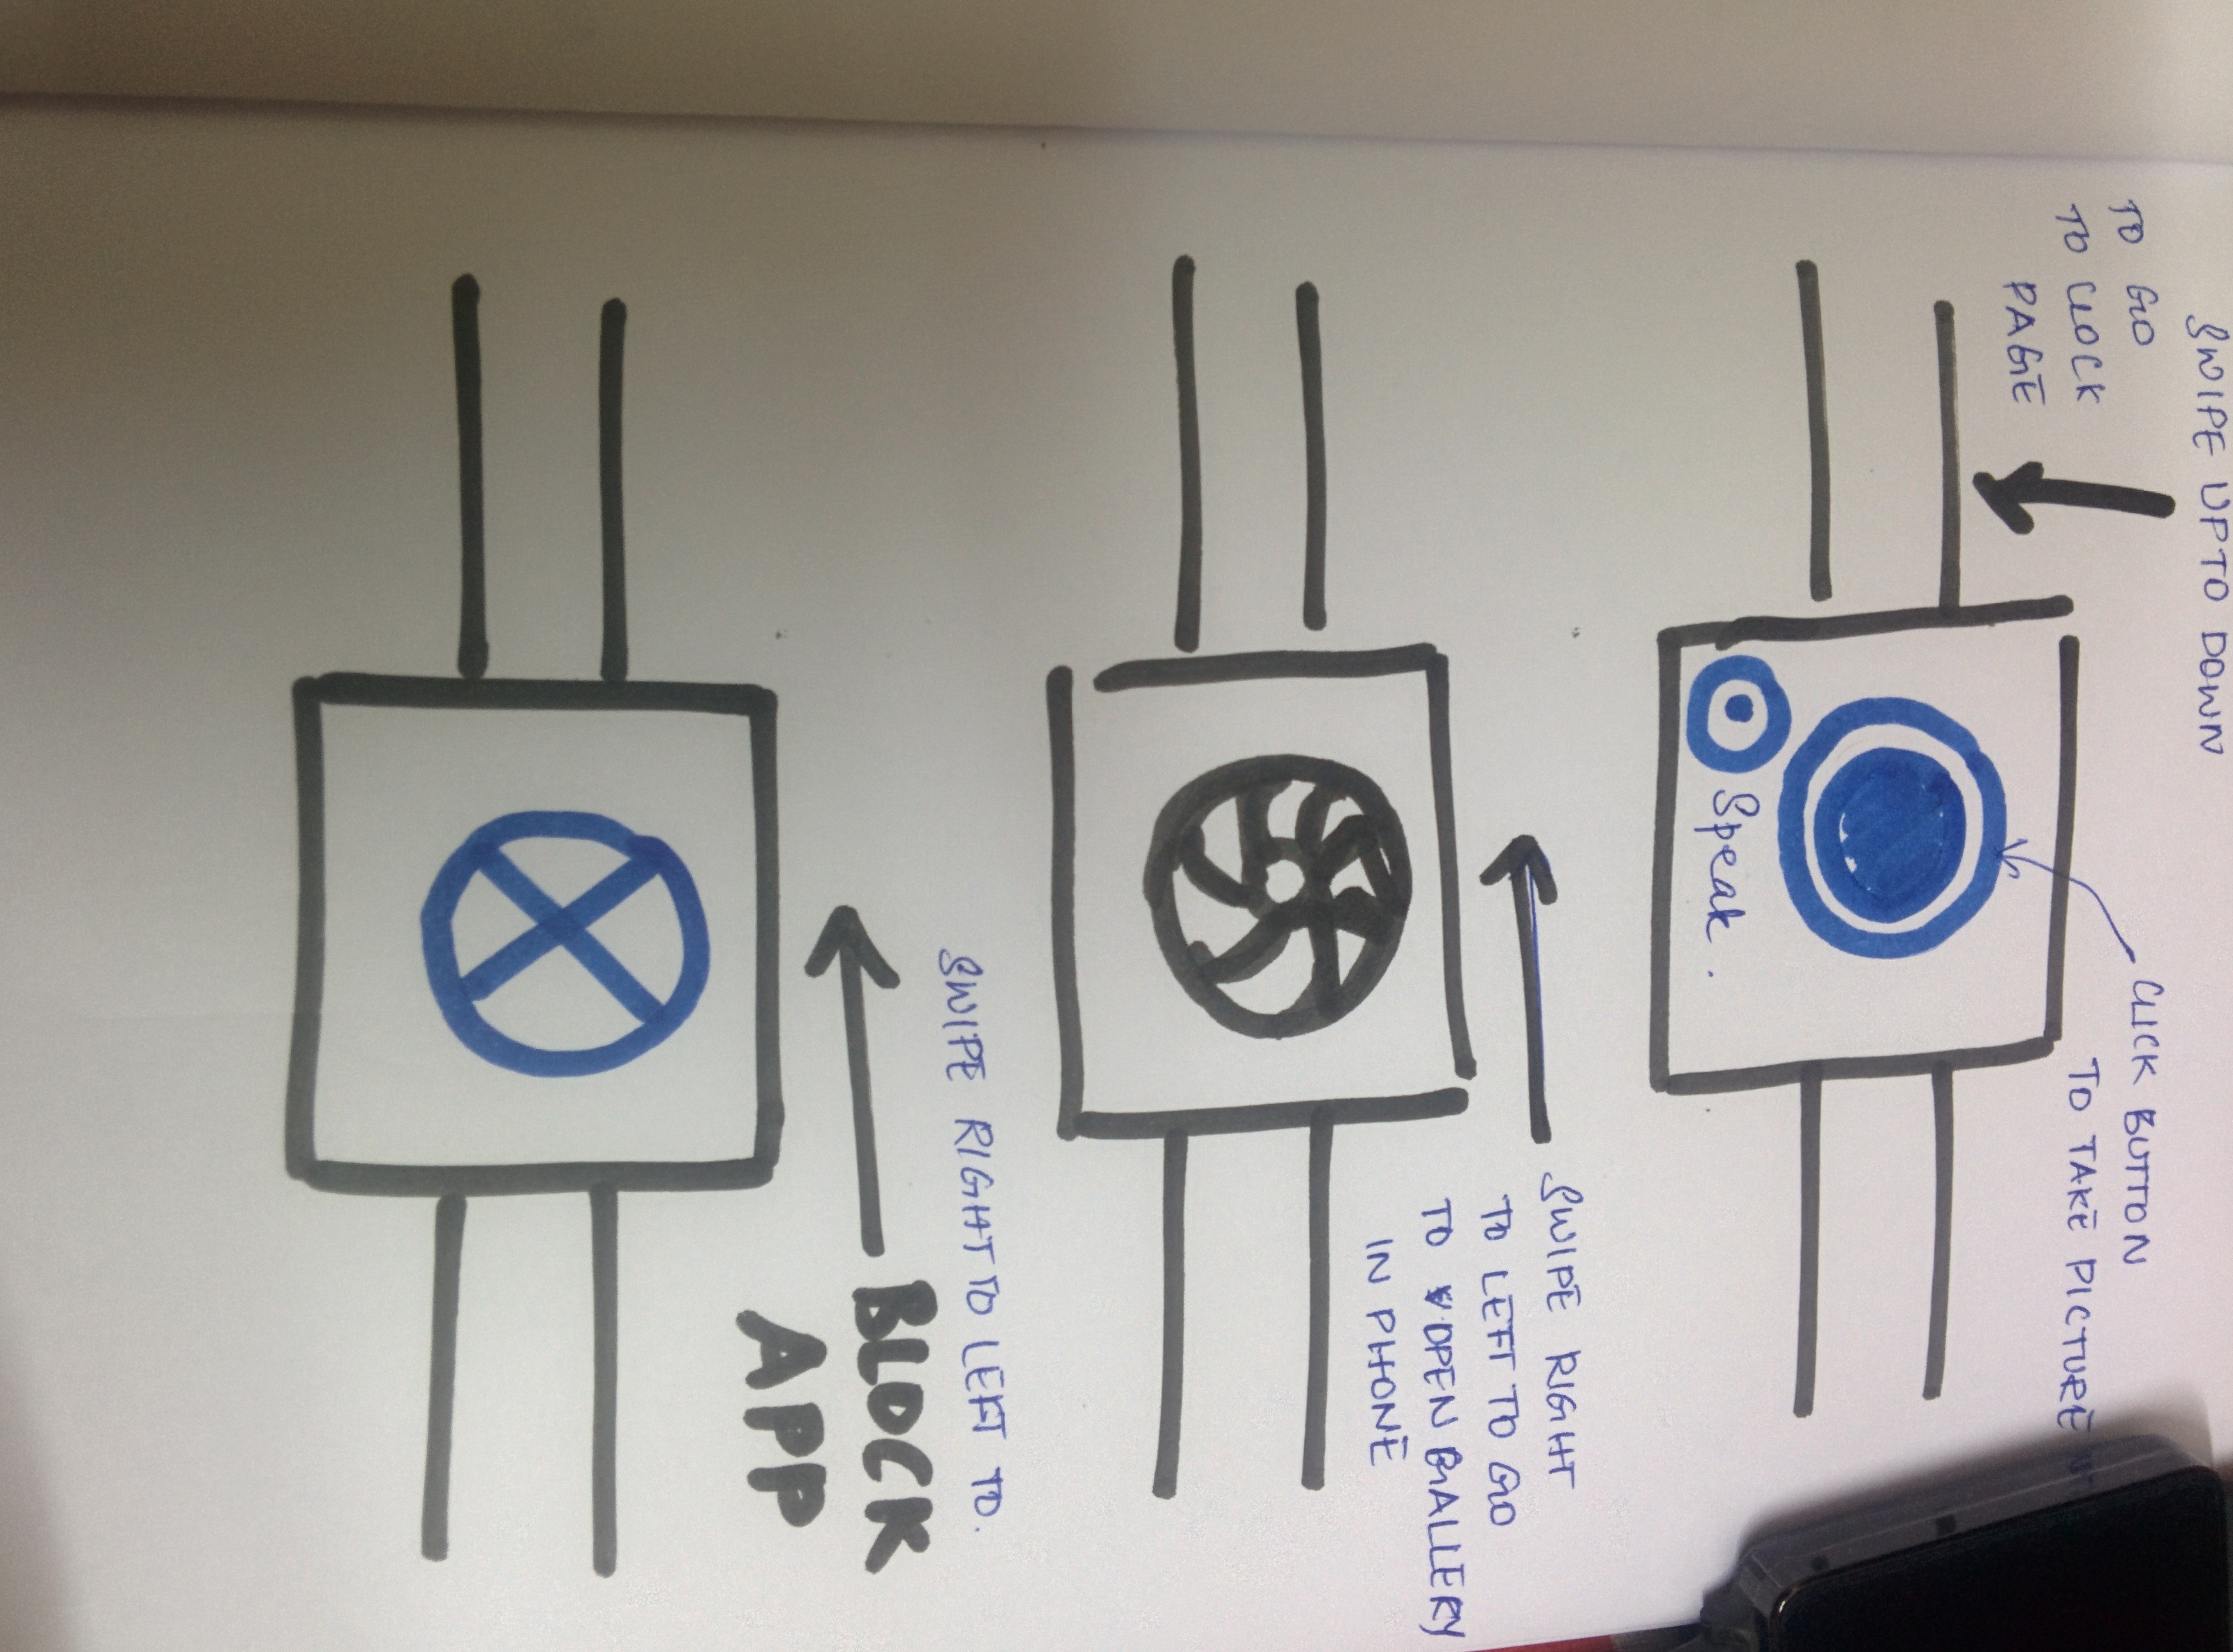 SWIPE UP TO DOWN
TO GO
TO CLOCK
PAGE
CLICK BUTTON
TO TAKE PICTURE
Speak.
SWIPE RIGHT
TO LEFT TO GO
TO OPEN GALLERY
IN PHONE
SWIPE RIGHT TO LEFT TO.
BLOCK
APP